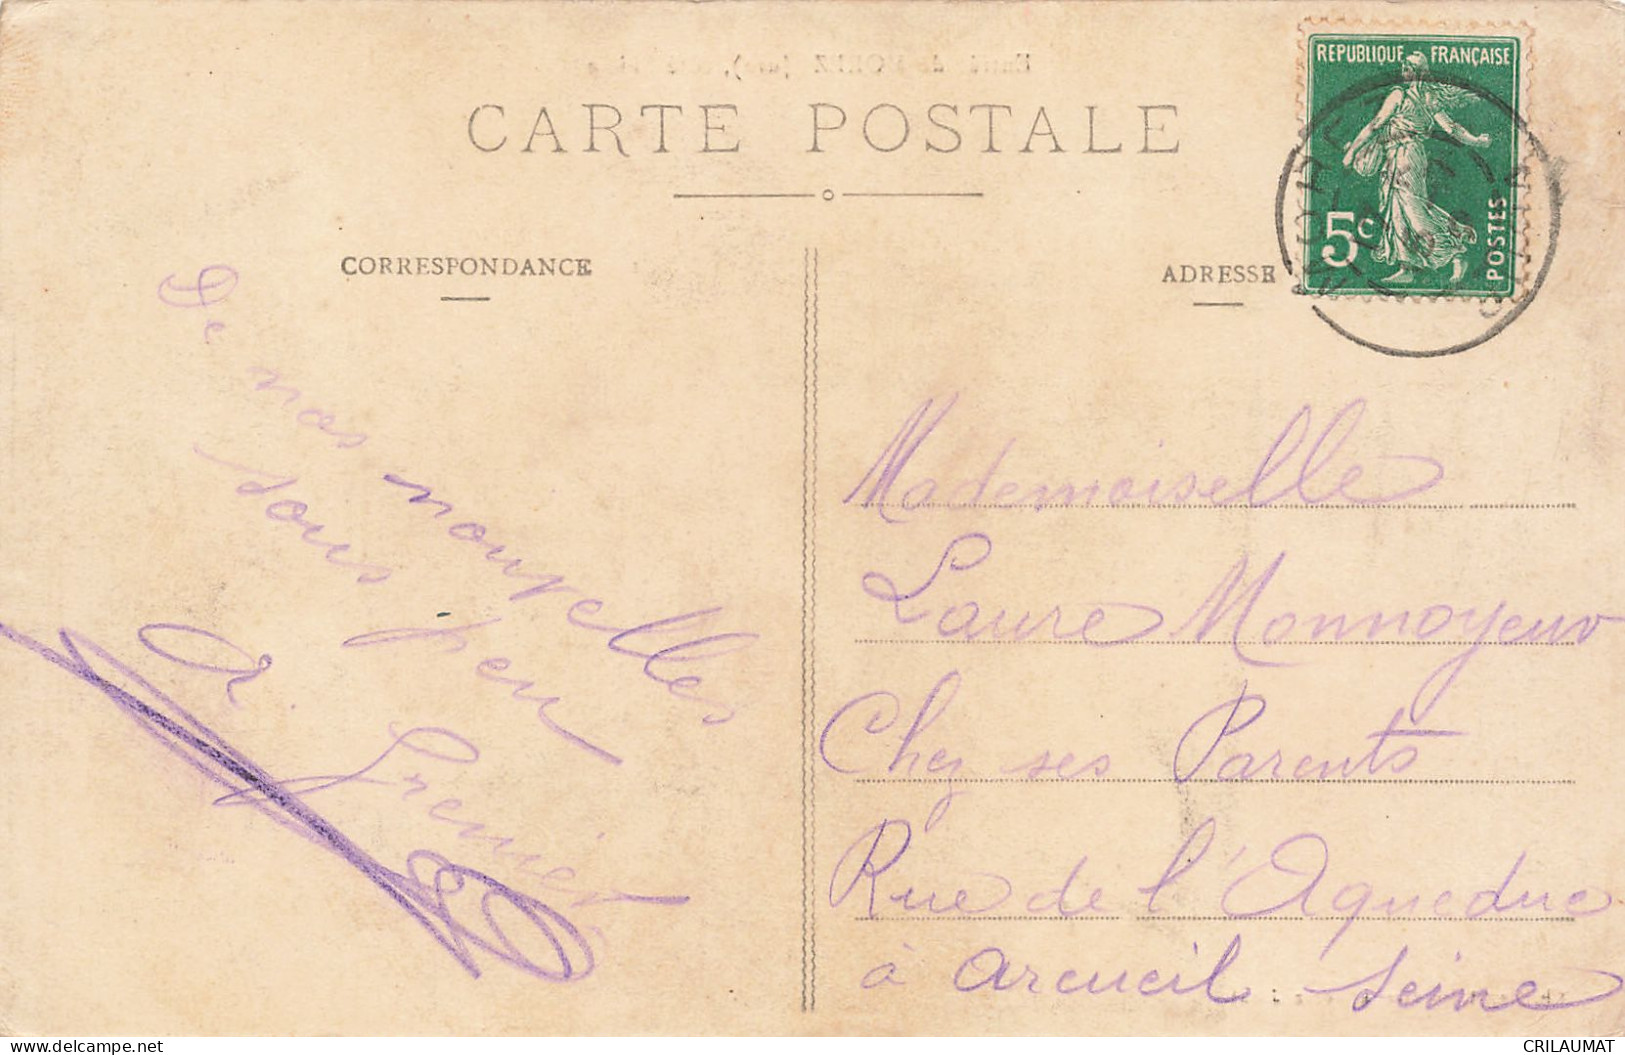 CARTE POSTALE
CORRESPONDANCE
ADRESSE
REPUBLIQUE FRANÇAISE
5c
POSTES
De nos nouvelles
sous peu
A. Grenier
Mademoiselle
Laure Monnoyeur
Chez ses Parents
Rue de l'Aqueduc
à Arcueil Seine
delcampe.net
CRILAUMAT